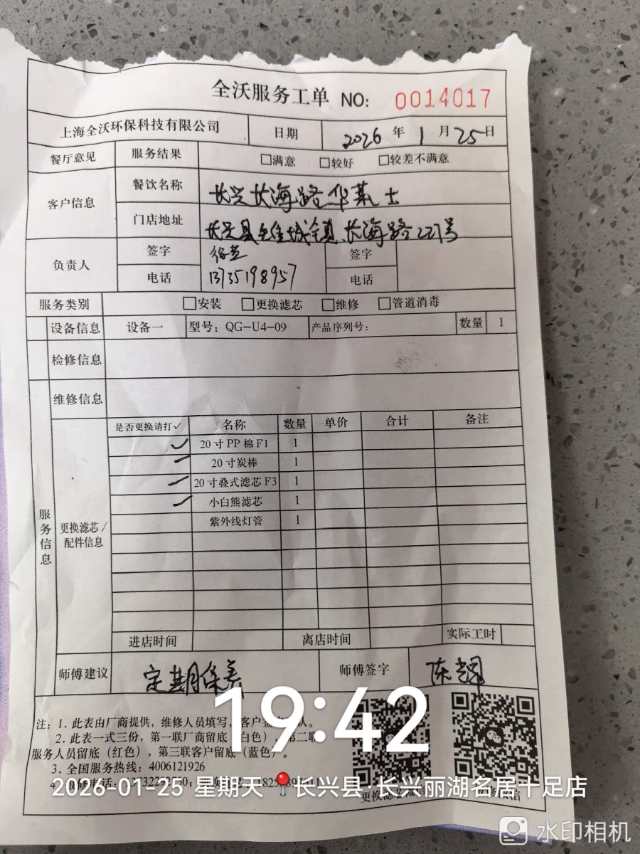 全沃服务工单 NO: 0014017
上海全沃环保科技有限公司 日期 2026 年 1 月 25 日
餐厅意见 服务结果 □满意 □较好 □较差不满意
客户信息 餐饮名称 长兴长海路华莱士
门店地址 长兴县雉城镇长海路227号
负责人 签字 签字
电话 13735198957 电话
服务类别 □安装 □更换滤芯 □维修 □管道消毒
设备信息 设备一 型号: QG-U4-09 产品序列号: 数量 1
检修信息
维修信息
服务信息 更换滤芯/配件信息
是否更换请打✓ 名称 数量 单价 合计 备注
✓ 20寸PP棉F1 1
✓ 20寸炭棒 1
✓ 20寸叠式滤芯F3 1
✓ 小白熊滤芯 1
紫外线灯管 1
进店时间 离店时间 实际工时
师傅建议 定期保养 师傅签字 陈辉
19:42
注: 1. 此表由厂商提供, 维修人员填写, 客户
2. 此表一式三份, 第一联厂商留底(白色), 第二联
服务人员留底(红色), 第三联客户留底(蓝色)。
3. 全国服务热线: 4006121926
2026-01-25 星期天 长兴县 长兴丽湖名居十足店
水印相机